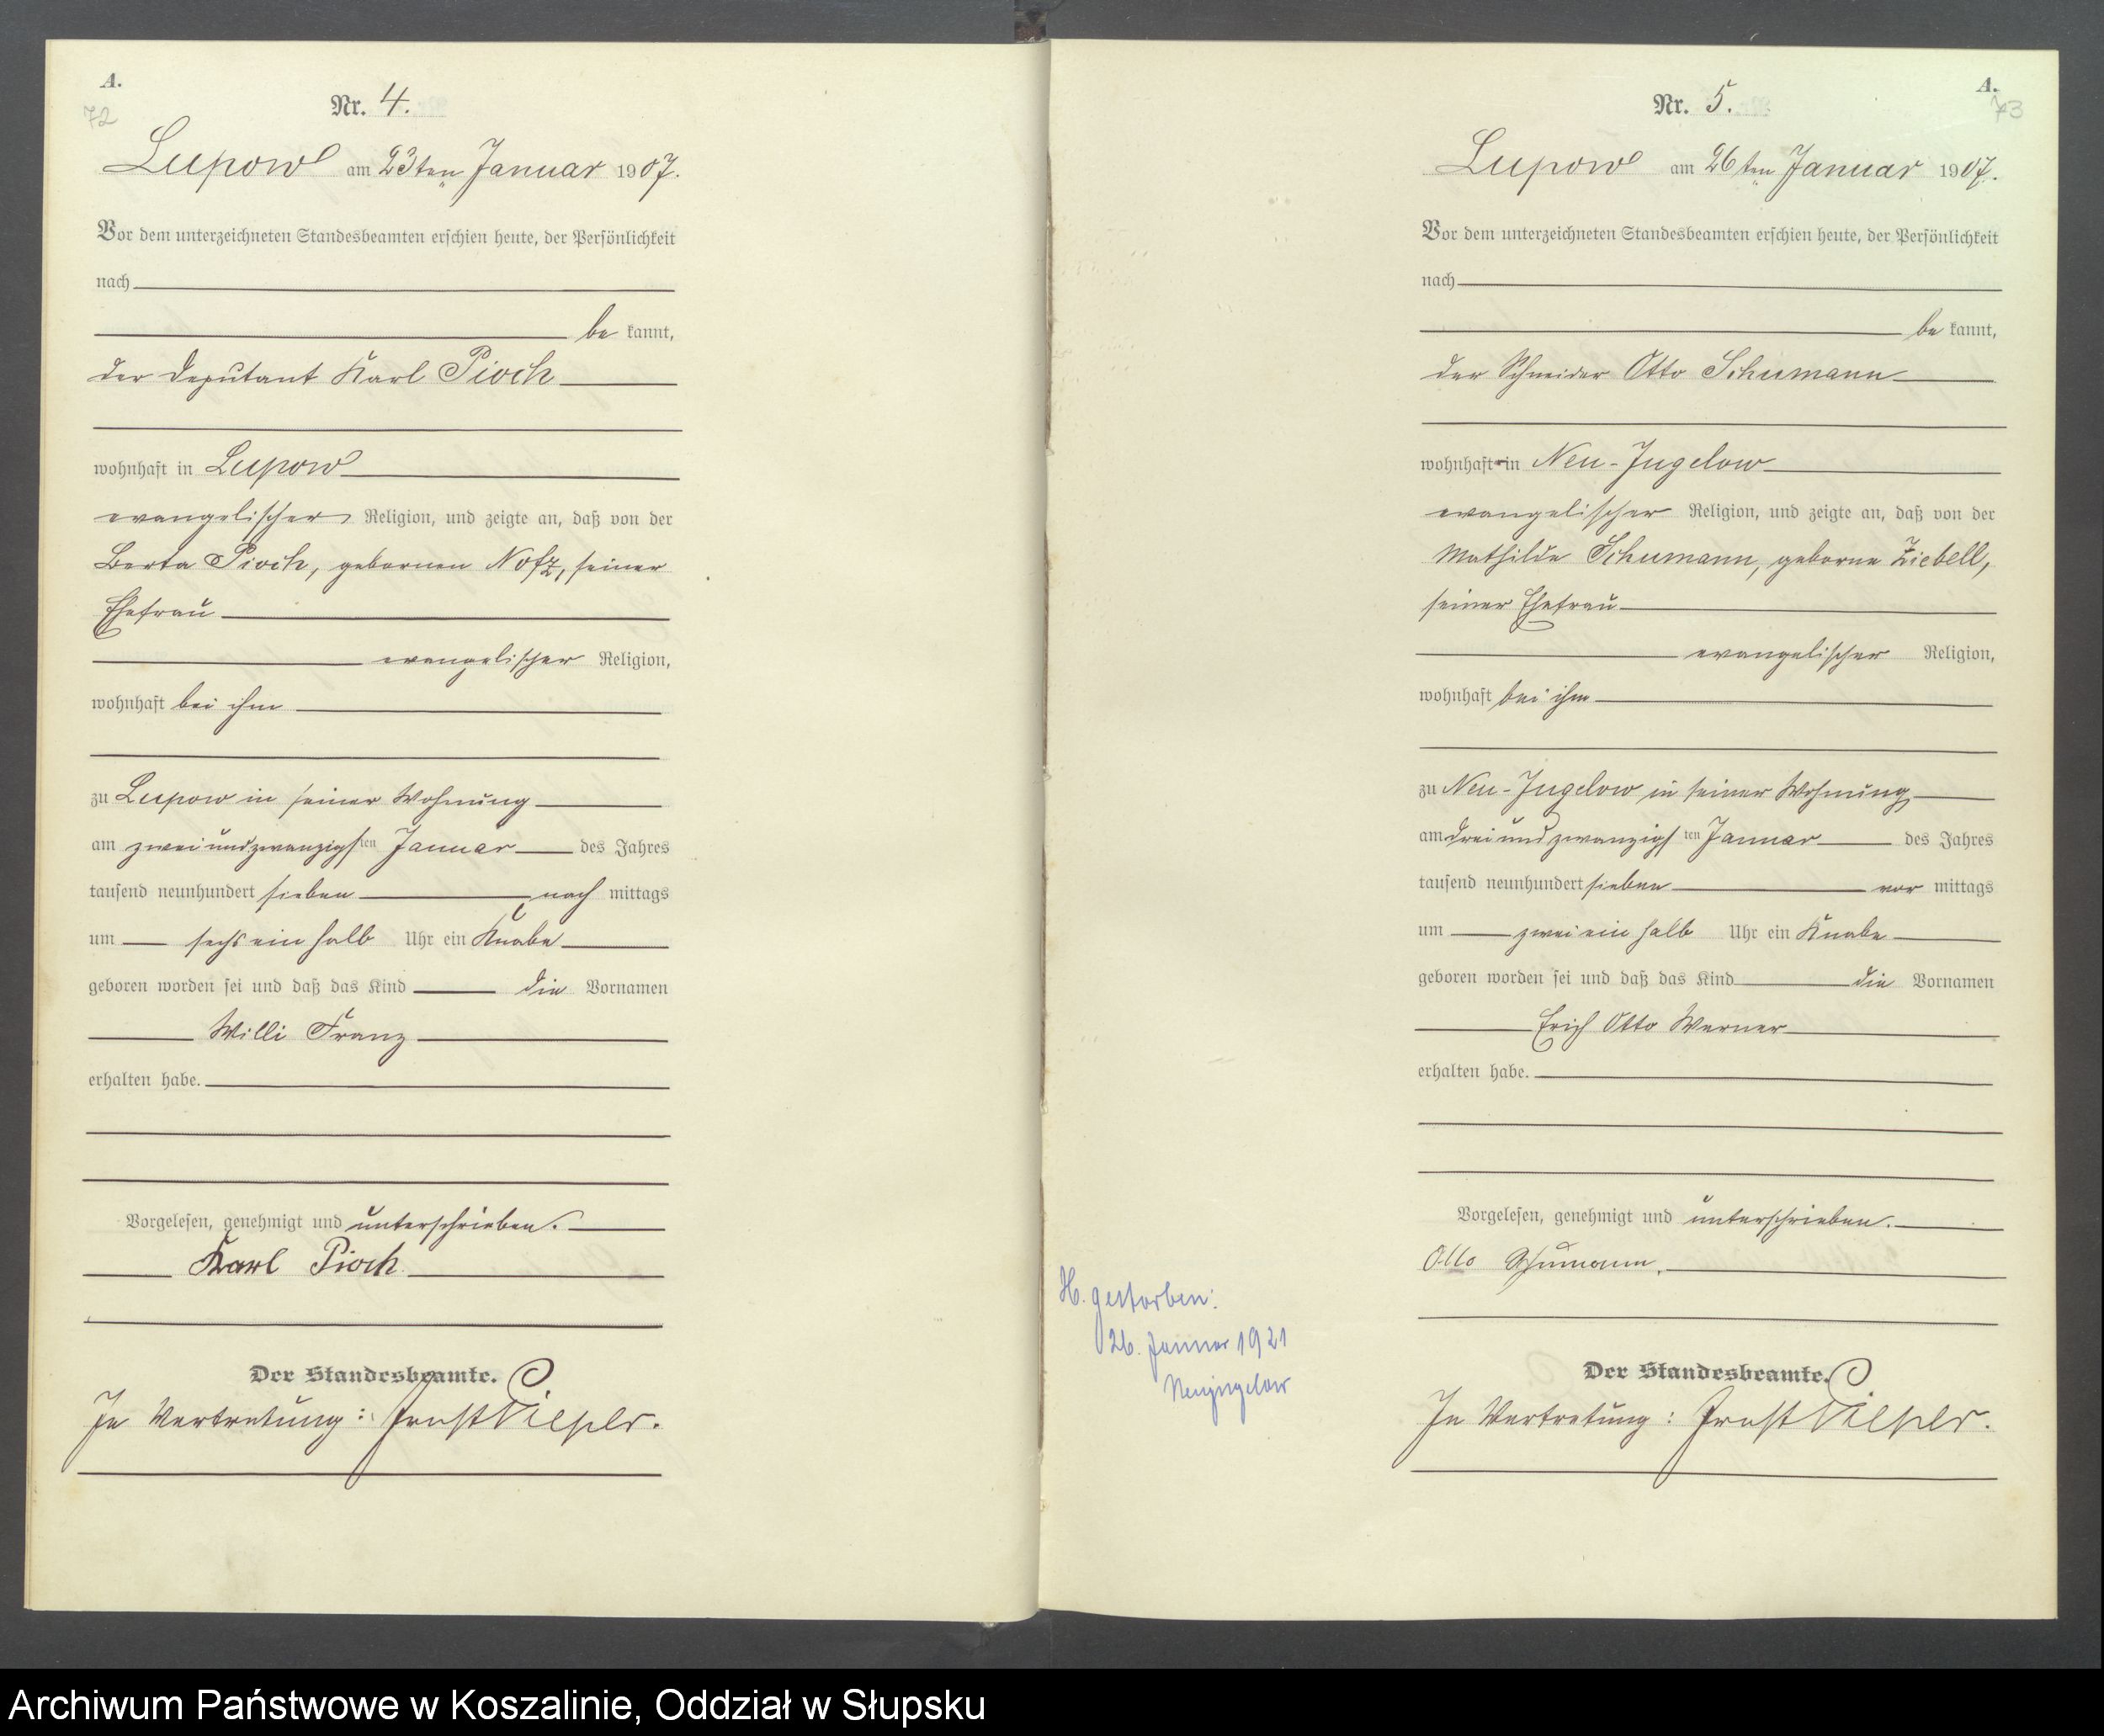 A.
72
Nr. 4.
Lupow am 23ten Januar 1907.
Vor dem unterzeichneten Standesbeamten erschien heute, der Persönlichkeit
nach
be kannt,
der Deputant Karl Pioch
wohnhaft in Lupow
evangelischer Religion, und zeigte an, daß von der
Berta Pioch, gebornen Notz, seiner
Ehefrau
evangelischer Religion,
wohnhaft bei ihm
zu Lupow in seiner Wohnung
am zweiundzwanzigsten Januar des Jahres
tausend neunhundert sieben nach mittags
um sechs ein halb Uhr ein Knabe
geboren worden sei und daß das Kind die Vornamen
Willi Franz
erhalten habe.
Vorgelesen, genehmigt und unterschrieben.
Karl Pioch
Der Standesbeamte.
In Vertretung: Ernst Pieper.
A.
73
Nr. 5.
Lupow am 26ten Januar 1907.
Vor dem unterzeichneten Standesbeamten erschien heute, der Persönlichkeit
nach
be kannt,
der Schneider Otto Schumann
wohnhaft in Neu-Jugelow
evangelischer Religion, und zeigte an, daß von der
Mathilde Schumann, geborne Ziebell,
seiner Ehefrau
evangelischer Religion,
wohnhaft bei ihm
zu Neu-Jugelow in seiner Wohnung
am dreiundzwanzigsten Januar des Jahres
tausend neunhundert sieben vor mittags
um zwei ein halb Uhr ein Knabe
geboren worden sei und daß das Kind die Vornamen
Erich Otto Werner
erhalten habe.
Vorgelesen, genehmigt und unterschrieben.
Otto Schumann.
Der Standesbeamte.
In Vertretung: Ernst Pieper.
H. gestorben:
26. Januar 1921
Neujugelow
Archiwum Państwowe w Koszalinie, Oddział w Słupsku